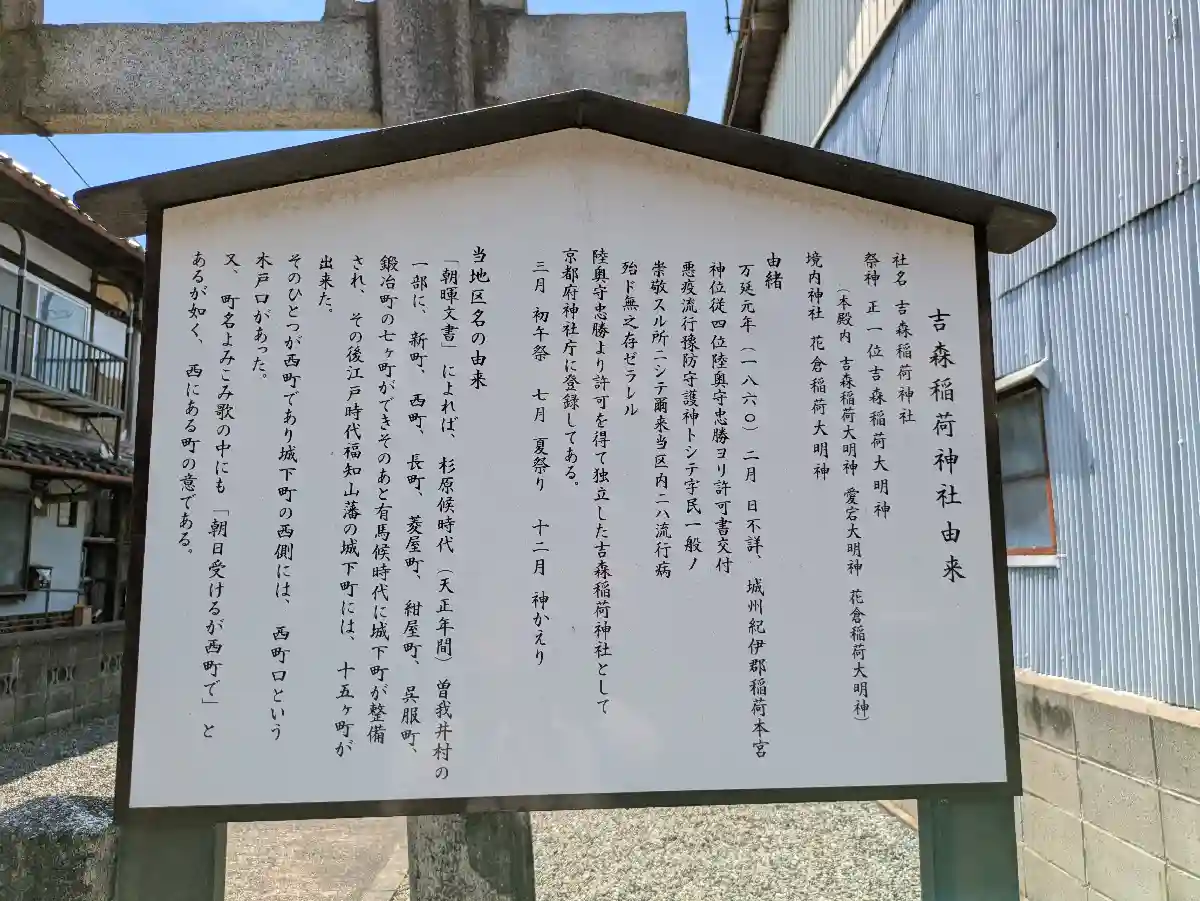 吉森稲荷神社由来
社名 吉森稲荷神社
祭神 正一位吉森稲荷大明神
（本殿内 吉森稲荷大明神 愛宕大明神 花倉稲荷大明神）
境内神社 花倉稲荷大明神
由緒
万延元年（一八六〇）二月 日不詳、城州紀伊郡稲荷本宮
神位従四位陸奥守忠勝ヨリ許可書交付
悪疫流行豫防守護神トシテ字民一般ノ
崇敬スル所ニシテ爾来当区内ニハ流行病
殆ド無之存ゼラレル
陸奥守忠勝より許可を得て独立した吉森稲荷神社として
京都府神社庁に登録してある。
三月 初午祭 七月 夏祭り 十二月 神かえり
当地区名の由来
「朝暉文書」によれば、杉原候時代（天正年間）曽我井村の
一部に、新町、西町、長町、菱屋町、紺屋町、呉服町、
鍛冶町の七ヶ町ができそのあと有馬候時代に城下町が整備
され、その後江戸時代福知山藩の城下町には、十五ヶ町が
出来た。
そのひとつが西町であり城下町の西側には、西町口という
木戸口があった。
又、町名よみこみ歌の中にも「朝日受けるが西町で」と
あるが如く、西にある町の意である。